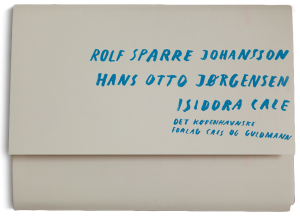 ROLF SPARRE JOHANSSON
HANS OTTO JØRGENSEN
ISIDORA CALE
DET KØBENHAVNSKE
FORLAG CATS OG GULDMANN